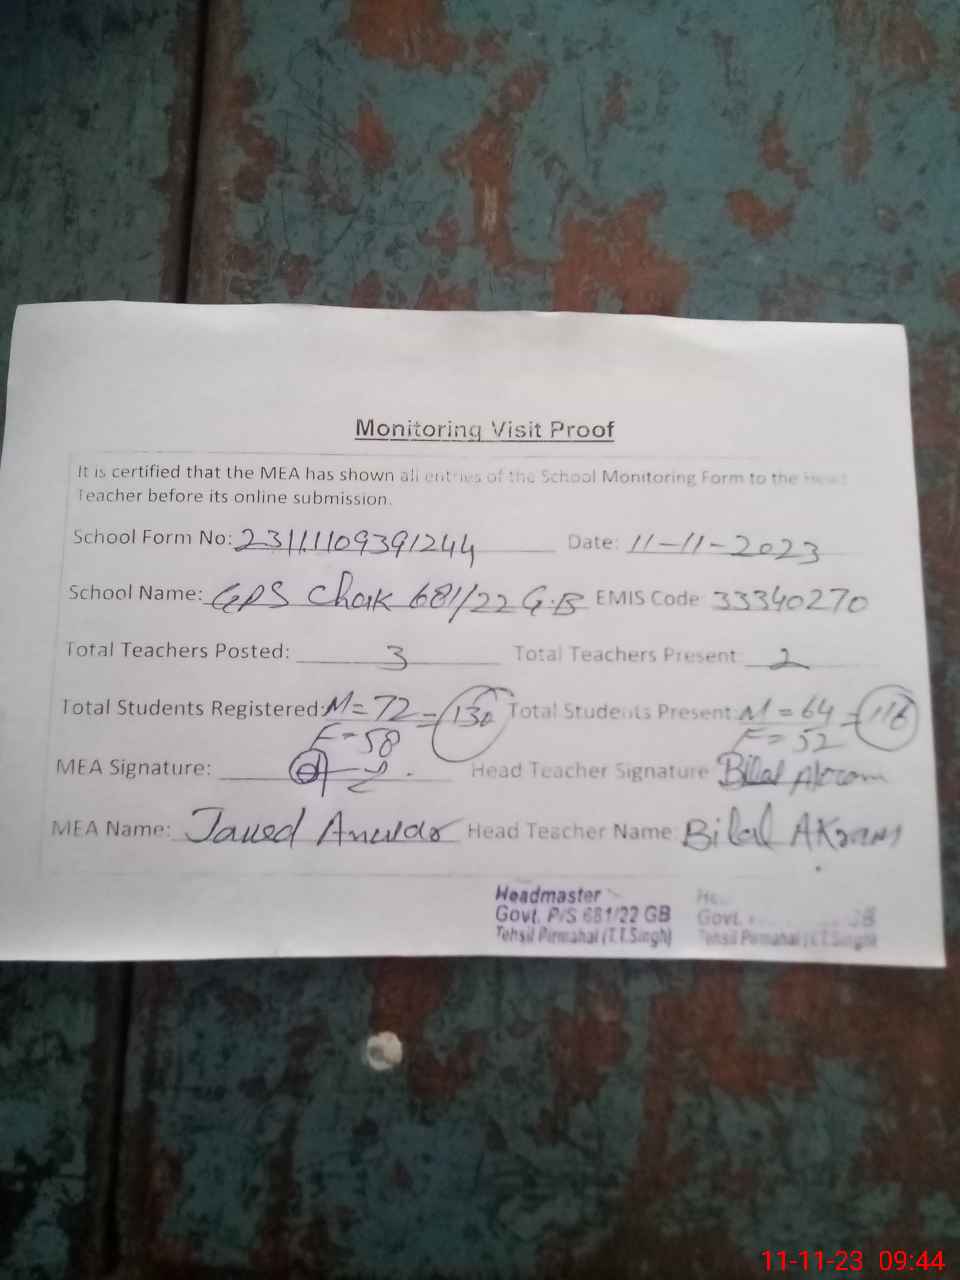 Monitoring Visit Proof
It is certified that the MEA has shown all entries of the School Monitoring Form to the Head
Teacher before its online submission.
School Form No: 23111109391244 Date: 11-11-2023
School Name: GPS Chak 681/22 G.B EMIS Code: 33340270
Total Teachers Posted: 3 Total Teachers Present: 2
Total Students Registered: M=72 = 130 Total Students Present: M=64 = 116
F=58 F=52
MEA Signature: Head Teacher Signature Bilal Akram
MEA Name: Javed Head Teacher Name: Bilal Akram
Headmaster
Govt. P/S 681/22 GB Govt. GB
Tehsil Pirmahal (T.T.Singh) Tehsil Pirmahal (T.T.Singh)
11-11-23 09:44